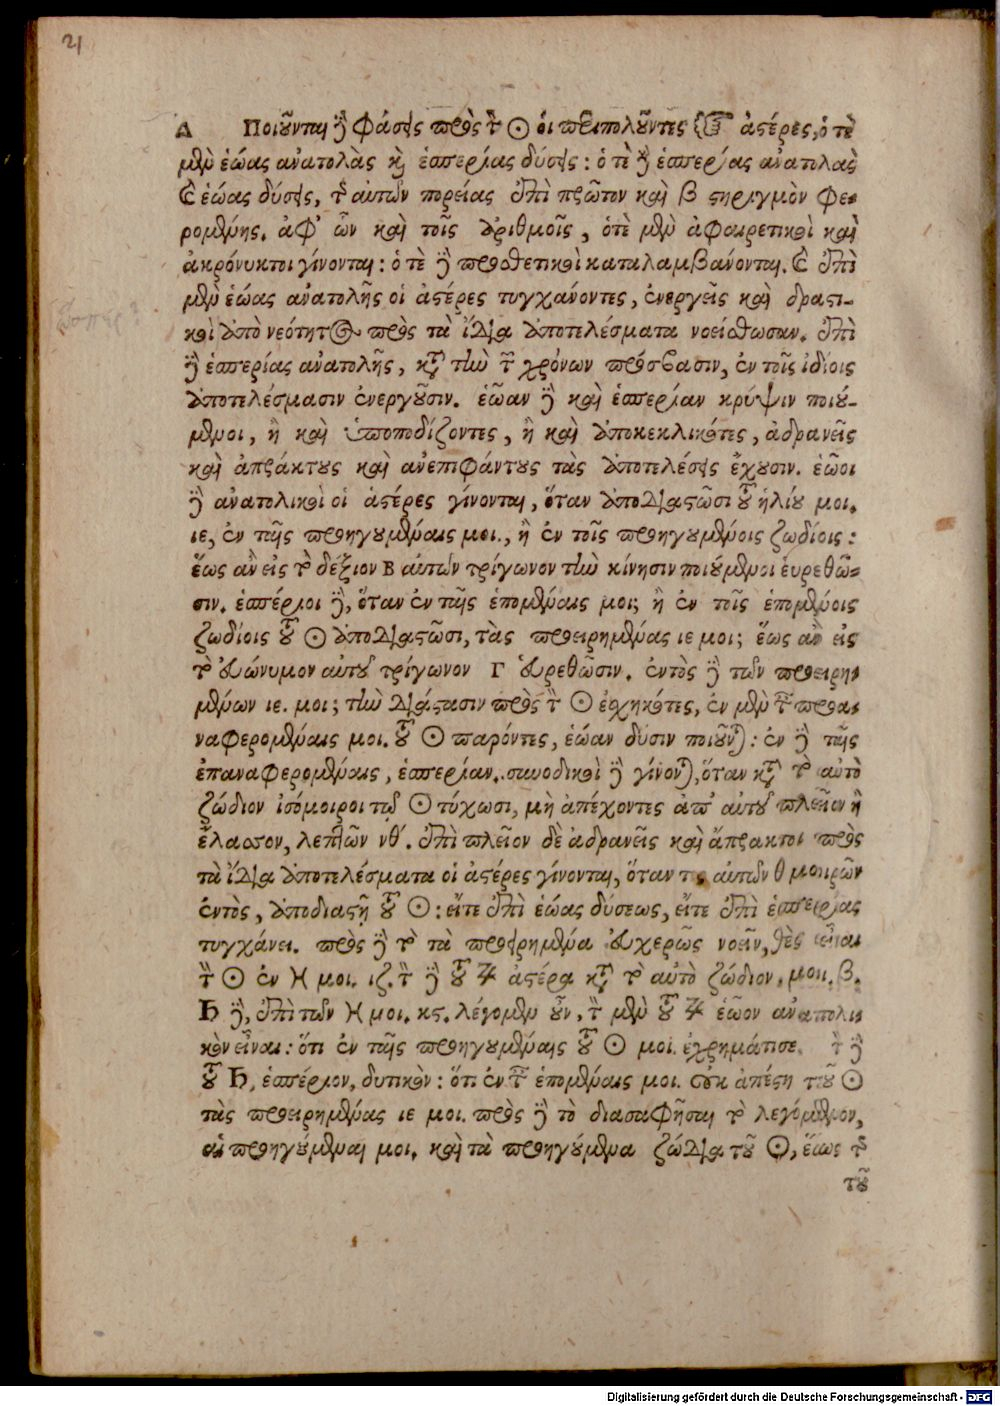 21
Α Ποιοῦνται δὲ φάσεις πρὸς τὸν ☉ οἱ περιπολοῦντες ἀστέρες, ὁτὲ
μὲν ἑώας ἀνατολὰς καὶ ἑσπερίας δύσεις: ὁτὲ δὲ ἑσπερίας ἀνατολὰς
καὶ ἑώας δύσεις, τῆς αὐτῶν πορείας ἐπὶ πρῶτον καὶ β στηριγμὸν φε-
ρομένης. ἀφ' ὧν καὶ τοῖς ἀριθμοῖς, ὁτὲ μὲν ἀφαιρετικοὶ καὶ
ἀκρόνυκτοι γίνονται: ὁτὲ δὲ προσθετικοὶ καταλαμβάνονται. καὶ ἐπὶ
μὲν ἑώας ἀνατολῆς οἱ ἀστέρες τυγχάνοντες, ἐνεργεῖς καὶ δραστι-
κοὶ ἀπὸ νεότητος πρὸς τὰ ἴδια ἀποτελέσματα νοείσθωσαν. ἐπὶ
δὲ ἑσπερίας ἀνατολῆς, κατὰ τὴν τῶν χρόνων πρόσβασιν, ἐν τοῖς ἰδίοις
ἀποτελέσμασιν ἐνεργοῦσιν. ἑῶαν δὲ καὶ ἑσπερίαν κρύψιν ποιού-
μενοι, ἢ καὶ ὑποποδίζοντες, ἢ καὶ ἀποκεκλικότες, ἀδρανεῖς
καὶ ἀπράκτους καὶ ἀνεπιφάντους τὰς ἀποτελέσεις ἔχουσιν. ἑῶοι
δὲ ἀνατολικοὶ οἱ ἀστέρες γίνονται, ὅταν ἀποδιαστῶσι τοῦ ἡλίου μοι.
ιε, ἐν ταῖς προηγουμέναις μοι., ἢ ἐν τοῖς προηγουμένοις ζωδίοις:
ἕως ἂν εἰς τὸ δέξιον Β αὐτῶν τρίγωνον τὴν κίνησιν ποιούμενοι εὑρεθῶ-
σιν. ἑσπέριοι δὲ, ὅταν ἐν ταῖς ἑπομέναις μοι; ἢ ἐν τοῖς ἑπομένοις
ζωδίοις τοῦ ☉ ἀποδιαστῶσι, τὰς προειρημένας ιε μοι; ἕως ἂν εἰς
τὸ εὐώνυμον αὐτοῦ τρίγωνον Γ εὑρεθῶσιν. ἐντὸς δὲ τῶν προειρη-
μένων ιε. μοι; τὴν διάστασιν πρὸς τὸν ☉ ἐσχηκότες, ἐν μὲν ταῖς προα-
ναφερομέναις μοι. τοῦ ☉ παρόντες, ἑώαν δύσιν ποιοῦνται: ἐν δὲ ταῖς
ἐπαναφερομέναις, ἑσπερίαν. συνοδικοὶ δὲ γίνονται, ὅταν κατὰ τὸ αὐτὸ
ζώδιον ἰσόμοιροι τῷ ☉ τύχωσι, μὴ ἀπέχοντες ἀπ' αὐτοῦ πλεῖον ἢ
ἔλασσον, λεπτῶν νθ'. ἐπὶ πλεῖον δὲ ἀδρανεῖς καὶ ἄπρακτοι πρὸς
τὰ ἴδια ἀποτελέσματα οἱ ἀστέρες γίνονται, ὅταν τις αὐτῶν θ μοιρῶν
ἐντὸς, ἀποδιαστῇ τοῦ ☉: εἴτε ἐπὶ ἑώας δύσεως, εἴτε ἐπὶ ἑσπερίας
τυγχάνει. πρὸς δὲ τὸ τὰ προειρημένα εὐχερῶς νοεῖν, θὲς εἶναι
τὸν ☉ ἐν ♓ μοι. ιζ. τὸν δὲ τοῦ ♃ ἀστέρα κατὰ τὸ αὐτὸ ζώδιον, μοι. β.
♄ δὲ, ἐπὶ τῶν ♓ μοι. κς. λέγομεν οὖν, τὸν μὲν τοῦ ♃ ἑῶον ἀνατολι-
κὸν εἶναι: ὅτι ἐν ταῖς προηγουμέναις τοῦ ☉ μοι. ἐχρημάτισε. τὸν δὲ
τοῦ ♄, ἑσπέριον, δυτικὸν: ὅτι ἐν ταῖς ἑπομέναις μοι. οὐκ ἀπέστη τοῦ ☉
τὰς προειρημένας ιε μοι. πρὸς δὲ τὸ διασαφῆσαι τὸ λεγόμενον,
αἱ προηγούμεναι μοι. καὶ τὰ προηγούμενα ζώδια τοῦ ☉, ἕως τῆς
τοῦ
Digitalisierung gefördert durch die Deutsche Forschungsgemeinschaft - DFG